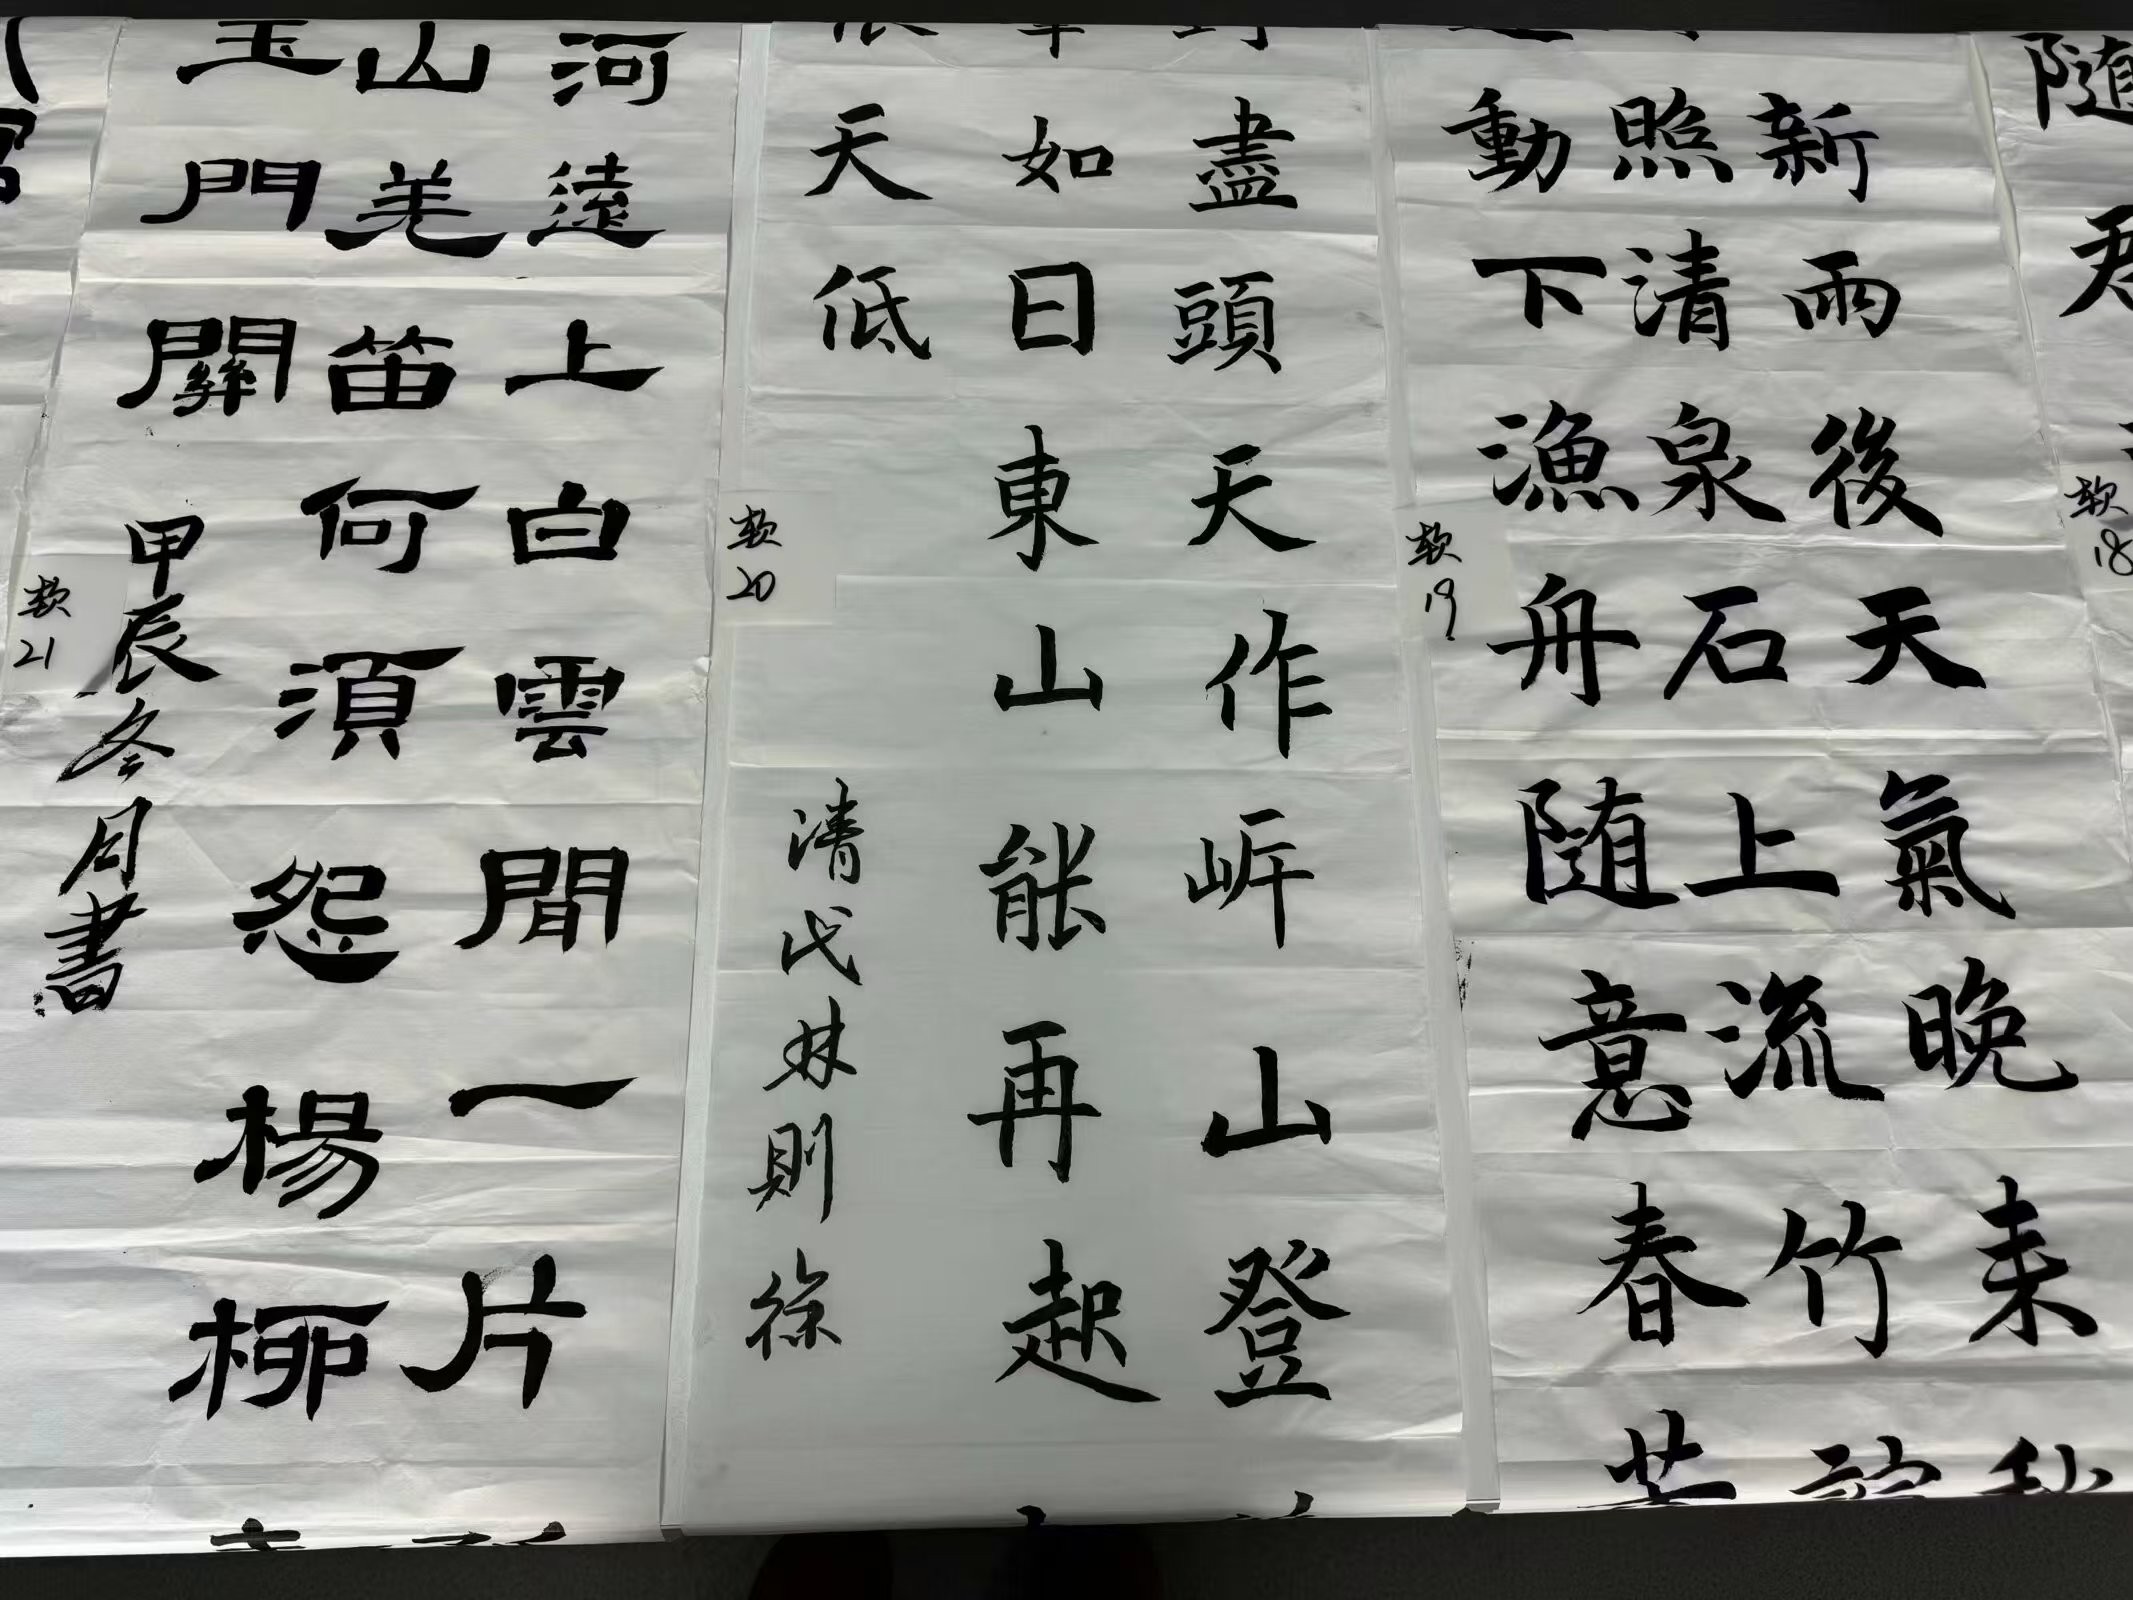 随君
软
18
新雨後天氣晚来秋
照清泉石上流竹
動下漁舟随意春
软
19
盡頭天作岸山登
如日東山能再起
天低
清代林則徐
软
20
河遠上白雲間一片
山羌笛何須怨楊柳
玉門關
甲辰冬月書
软
21